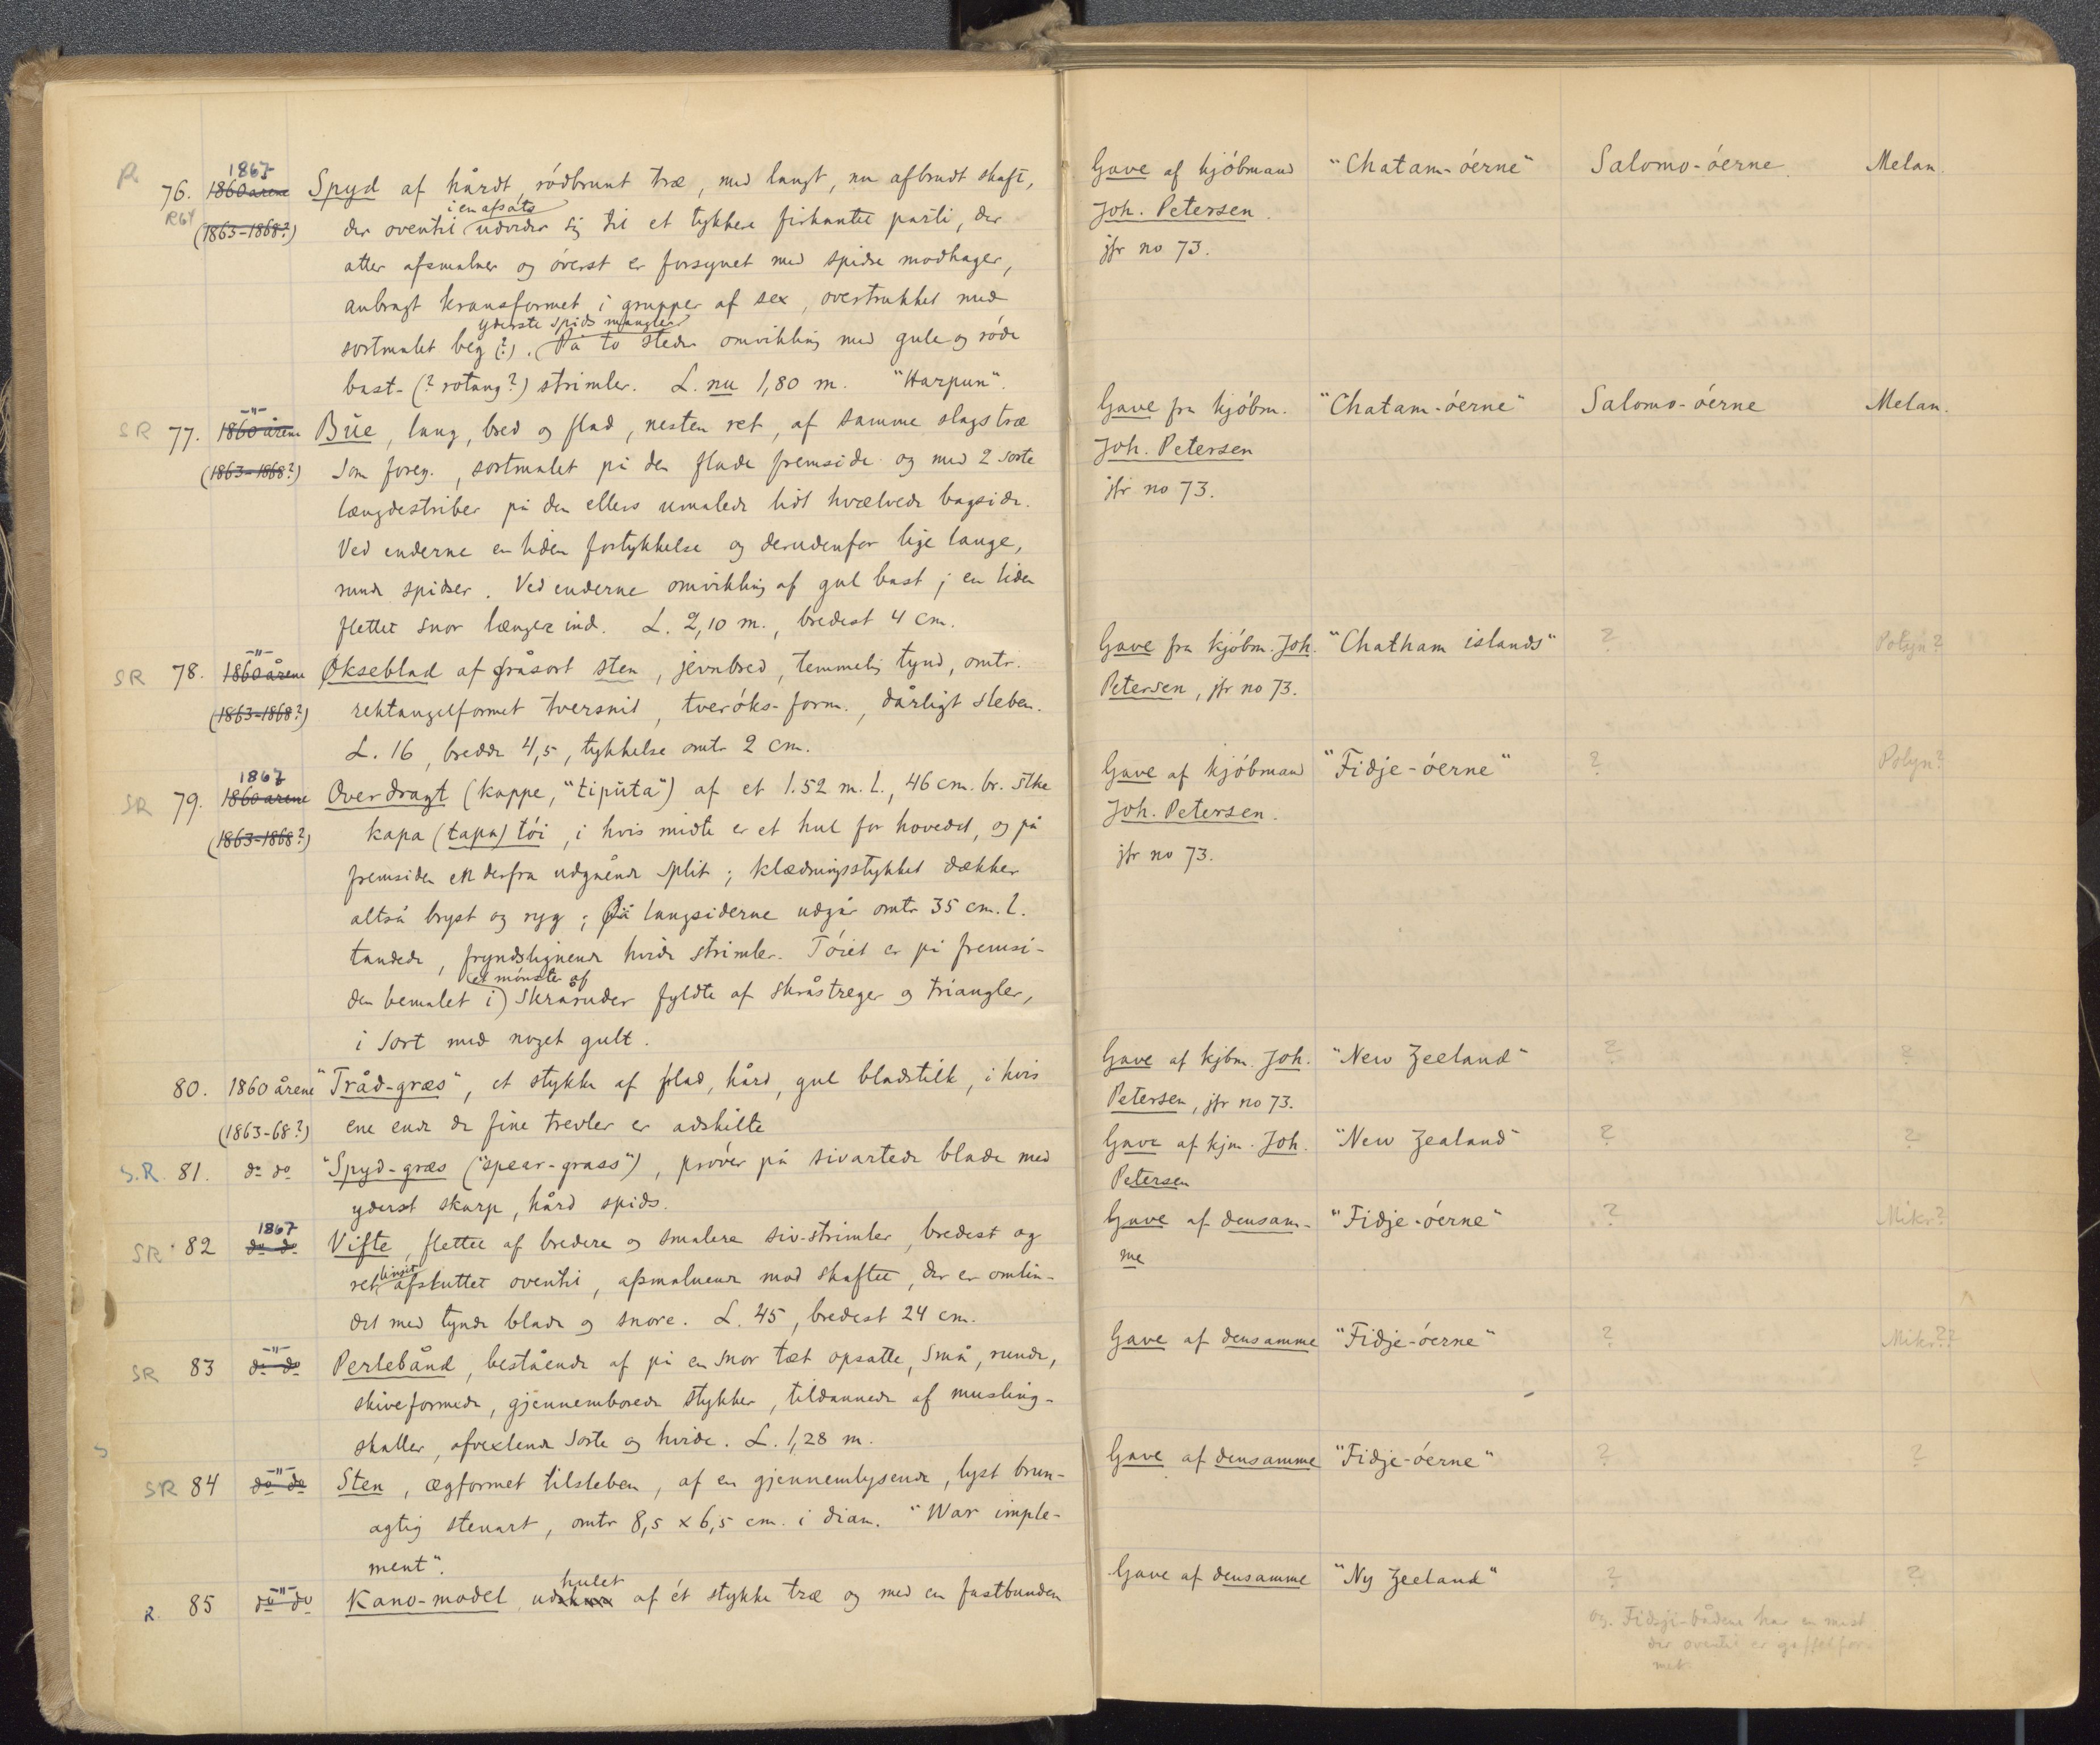 R. 76. 1867 1860 årene Spyd af hårdt, rödbrunt træ, med langt, nu afbrudt skaft,
R64 (1863-1868?) der oventil i en afsats udvider sig til et tykkere firkantet parti, der
atter afsmalner og överst er forsynet med spidse modhager,
anbragt kransformet i grupper af sex, overtrukket med
sortmalet beg (?). yderste spids mangler På to steder omvikling med gule og röde
bast- (? rotang?) strimler. L. nu 1,80 m. "Harpun".
Gave af kjöbmand "Chatam-öerne" Salomo-öerne. Melan.
Joh. Petersen.
jfr no 73.
SR 77. -"- 1860 årene Bue, lang, bred og flad, nesten ret, af samme slags træ
(1863-1868?) som foreg., sortmalet på den flade fremside og med 2 sorte
længdestriber på den ellers umalede lidt hvælvede bagside.
Ved enderne en liden fortykkelse og derudenfor lige lange,
runde spidser. Ved enderne omvikling af gul bast; en liden
flettet snor længer ind. L. 2,10 m., bredest 4 cm.
Gave fra kjöbm. "Chatam-öerne" Salomo-öerne Melan.
Joh. Petersen
jfr no 73.
SR 78. -"- 1860 årene Økseblad af gråsort sten, jevnbred, temmelig tynd, omtr.
(1863-1868?) rektangelformet tversnit, tveröks-form., dårligt sleben.
L. 16, bredde 4,5, tykkelse omtr 2 cm.
Gave fra kjöbm. Joh. "Chatham islands" ? Polyn?
Petersen, jfr no 73.
SR 79. 1867 1860 årene Overdragt (kappe, "tiputa") af et 1.52 m. l., 46 cm. br. stke
(1863-1868?) kapa (tapa) töi, i hvis midte er et hul for hovedet, og på
fremsiden en derfra udgående split; klædningsstykket dækker
altså bryst og ryg; På langsiderne udgår omtr 35 cm. l.
tandede, fryndslignende hvide strimler. Töiet er på fremsi-
den bemalet i et mönster af skråruder fyldte af skråstreger og triangler,
i sort med noget gult.
Gave af kjöbmand "Fidje-öerne" ? Polyn?
Joh. Petersen.
jfr no 73.
80. 1860 årene "Tråd-græs", et stykke af flad, hård, gul bladstilk, i hvis
(1863-68?) ene ende de fine trevler er adskilte
Gave af kjbm. Joh. "New Zeeland" ? ?
Petersen, jfr no 73.
S.R. 81. do do "Spyd-græs ("spear-grass"), pröver på sivartede blade med
yderst skarp, hård spids.
Gave af kjm. Joh. "New Zealand" ? ?
Petersen
SR 82 1867 do do Vifte, flettet af bredere og smalere siv-strimler, bredest og
retlinjet afskuttet oventil, afsmalnende mod skaftet, der er omlin-
det med tynde blade og snore. L. 45, bredest 24 cm.
Gave af densam- "Fidje-öerne" ? Mikr?
me
SR 83 -"- do do Perlebånd, bestående af på en snor tæt opsatte, små, runde,
skiveformede, gjennemborede stykker, tildannede af musling-
skaller, afvexlende sorte og hvide. L. 1,28 m.
Gave af densamme "Fidje-öerne" ? Mikr??
SR 84 -"- do do Sten, ægformet tilsleben, af en gjennemlysende, lyst brun-
agtig stenart, omtr 8,5 x 6,5 cm. i diam. "War imple-
ment".
Gave af densamme "Fidje-öerne" ? ?
R. 85 -"- do do Kano-model udhulet af ét stykke træ og med en fastbunden
Gave af densamme "Ny Zeeland" ? ?
og. Fidsji-bådene har en mast
der oventil er gaffelfor-
met.